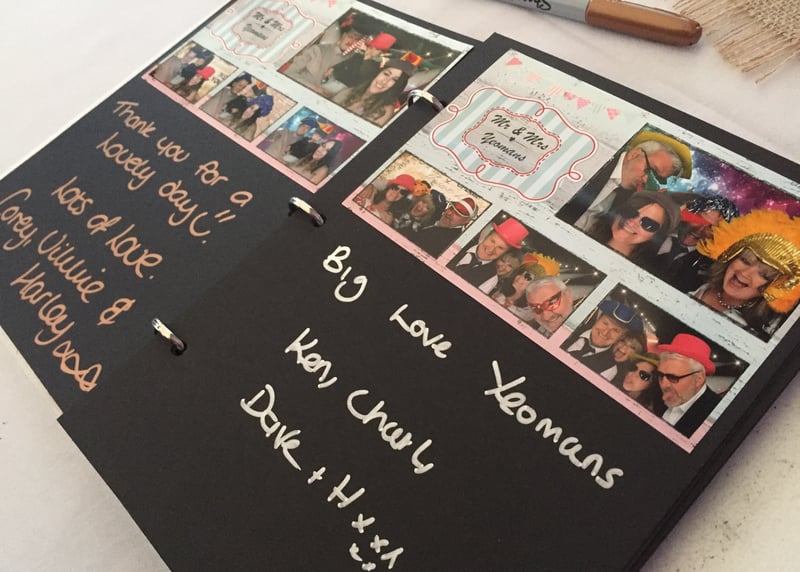 Mr & Mrs
Yeomans
Thank you for a
lovely day
Lots of love.
Corey, Vinnie &
Harley xxx
Mr & Mrs
Yeomans
Big Love Yeomans
Ken, Charly
Dave + H xxx